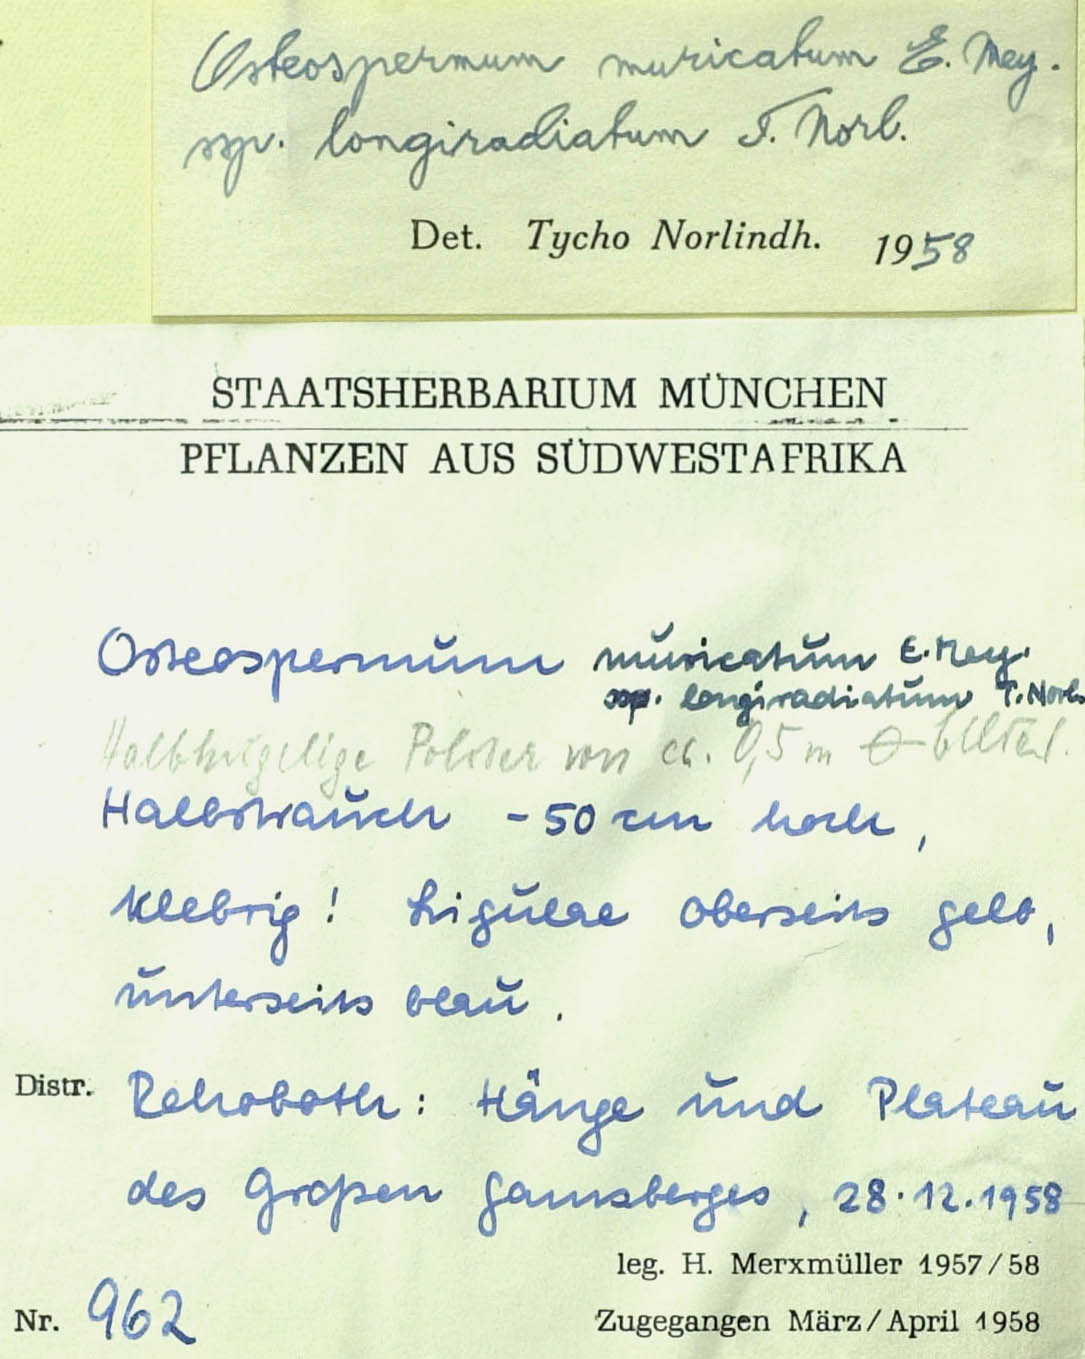 Osteospermum muricatum E. Mey.
ssp. longiradiatum T. Norl.
Det. Tycho Norlindh. 1958
STAATSHERBARIUM MÜNCHEN
PFLANZEN AUS SÜDWESTAFRIKA
Osteospermum muricatum E. Mey.
ssp. longiradiatum T. Norl.
Halbkugelige Polster von ca. 0,5 m
Halbstrauch - 50 cm hoch,
klebrig! Ligulae oberseits gelb,
unterseits blau.
Distr. Rehoboth: Hänge und Plateau
des Großen Gamsberges, 28.12.1958
leg. H. Merxmüller 1957/58
Nr. 962
Zugegangen März/April 1958